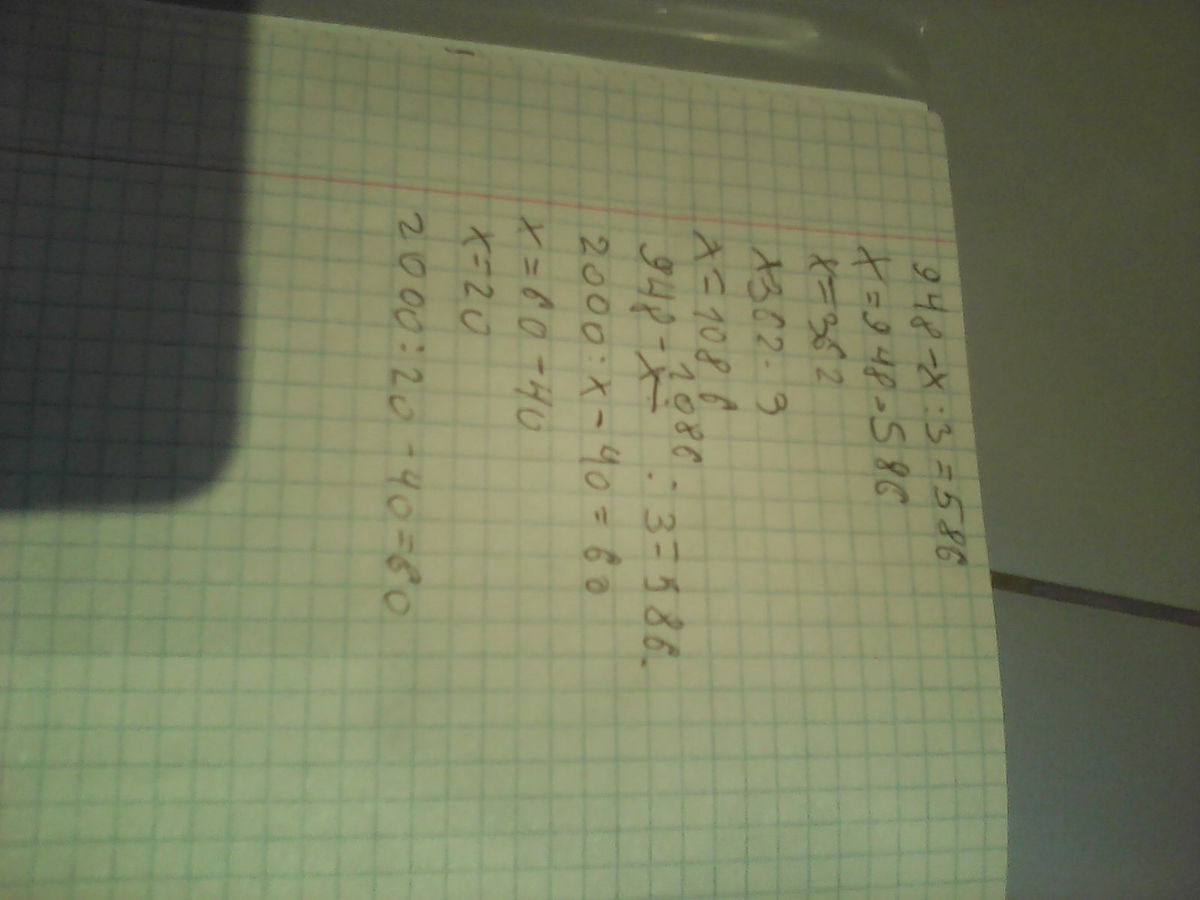 948-x:3=586
x=948-586
x=362
x362·3
x=1086
948-x 1086:3=586.
2000:x-40=60
x=60-40
x=20
2000:20-40=60